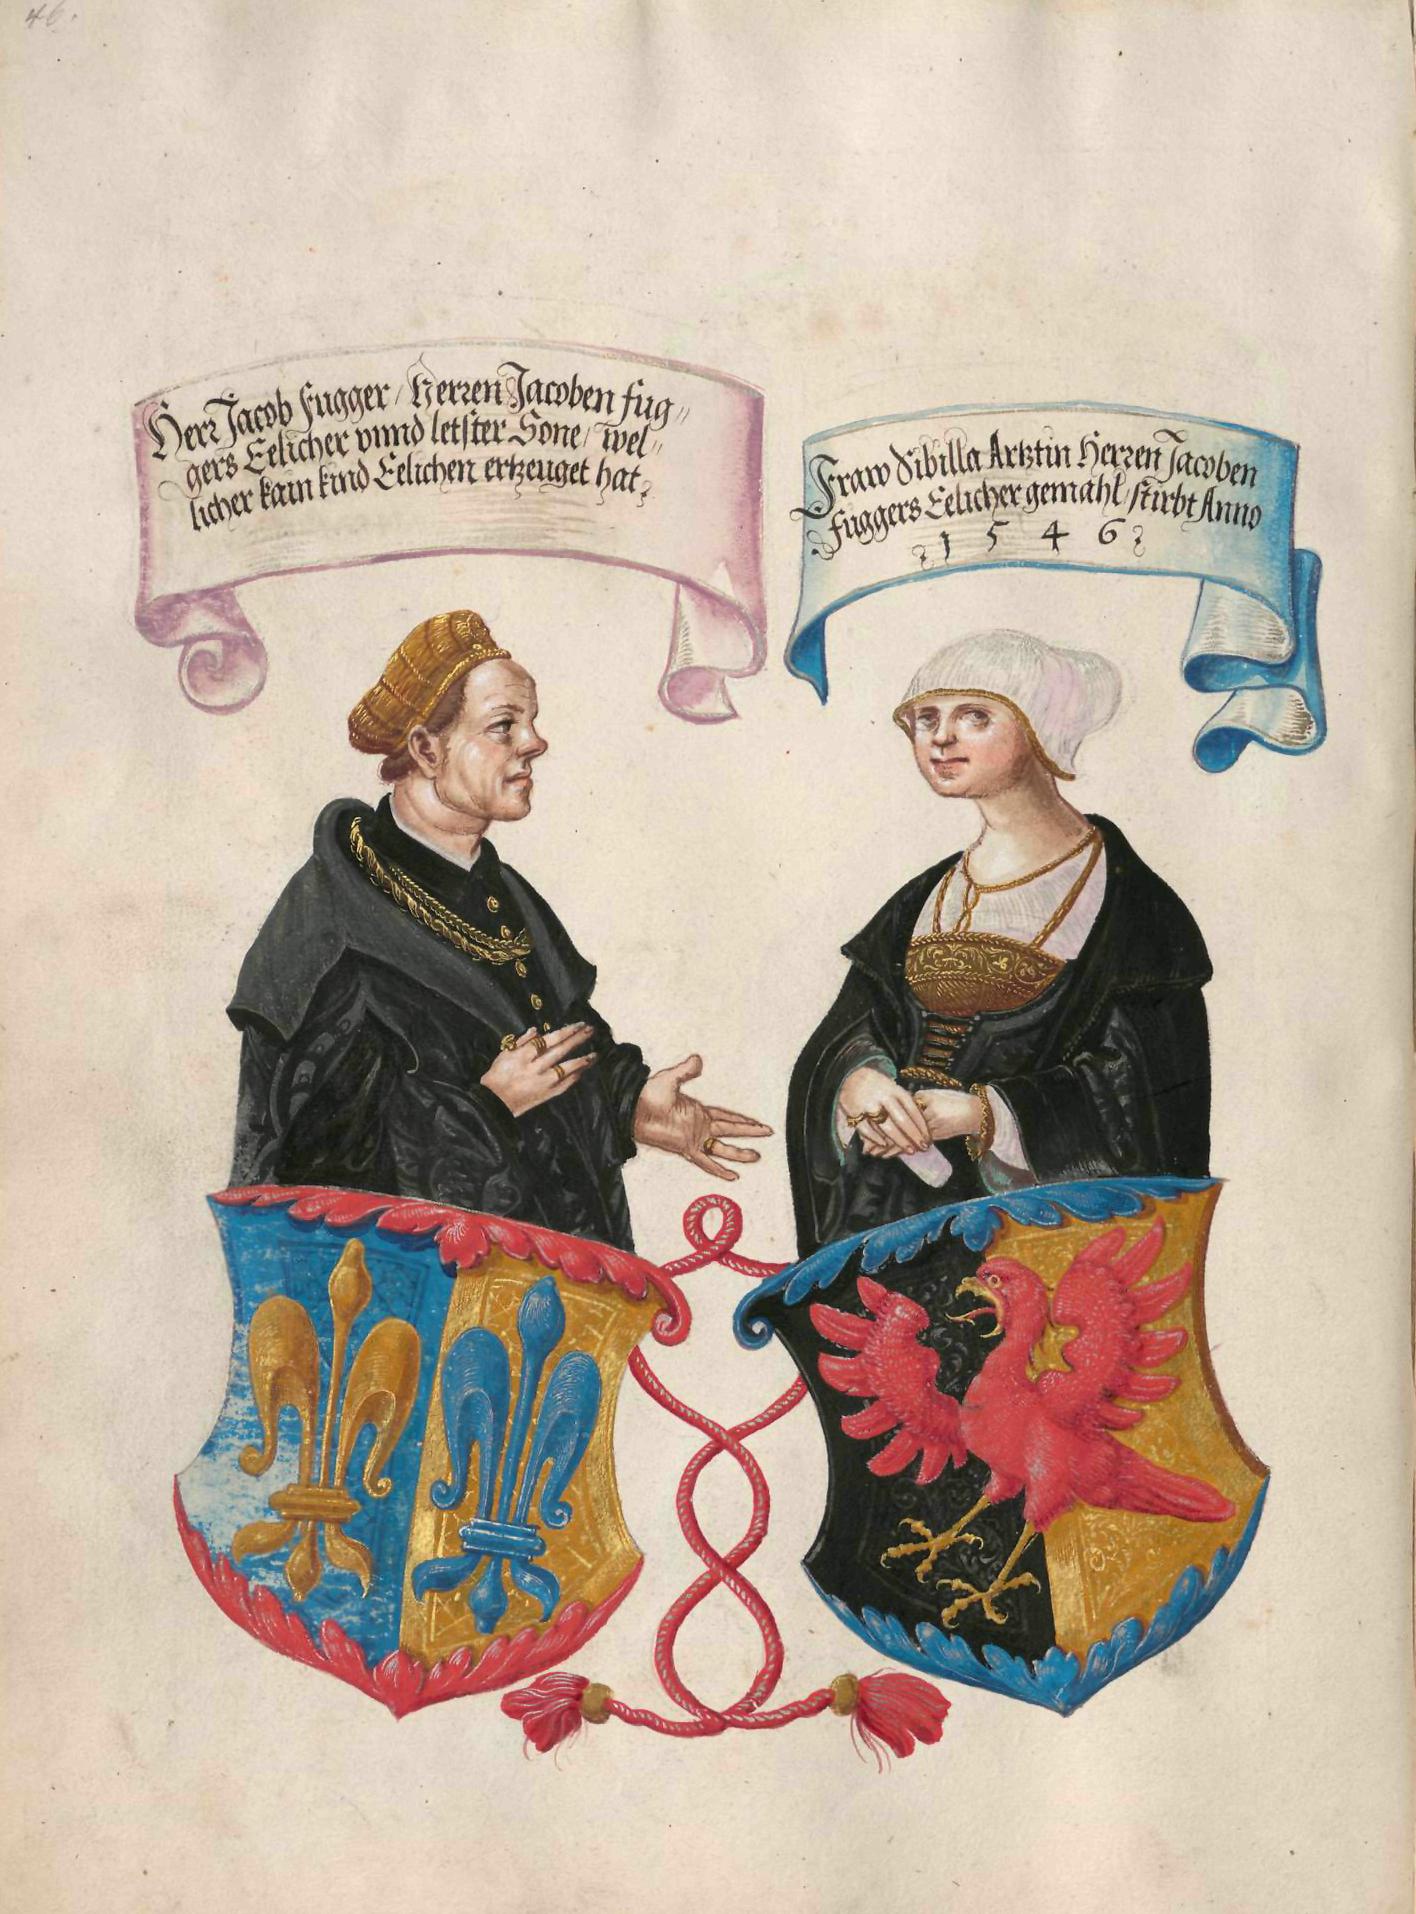 46.
Herr Jacob Fugger / Herren Jacoben Fug„
gers Eelicher vnnd letster Sone / wel„
licher kain kind Eelichen ertzeuget hat.
Fraw Sibilla Artztin Herren Jacoben
Fuggers Eelicher gemahl / stirbt Anno
1546